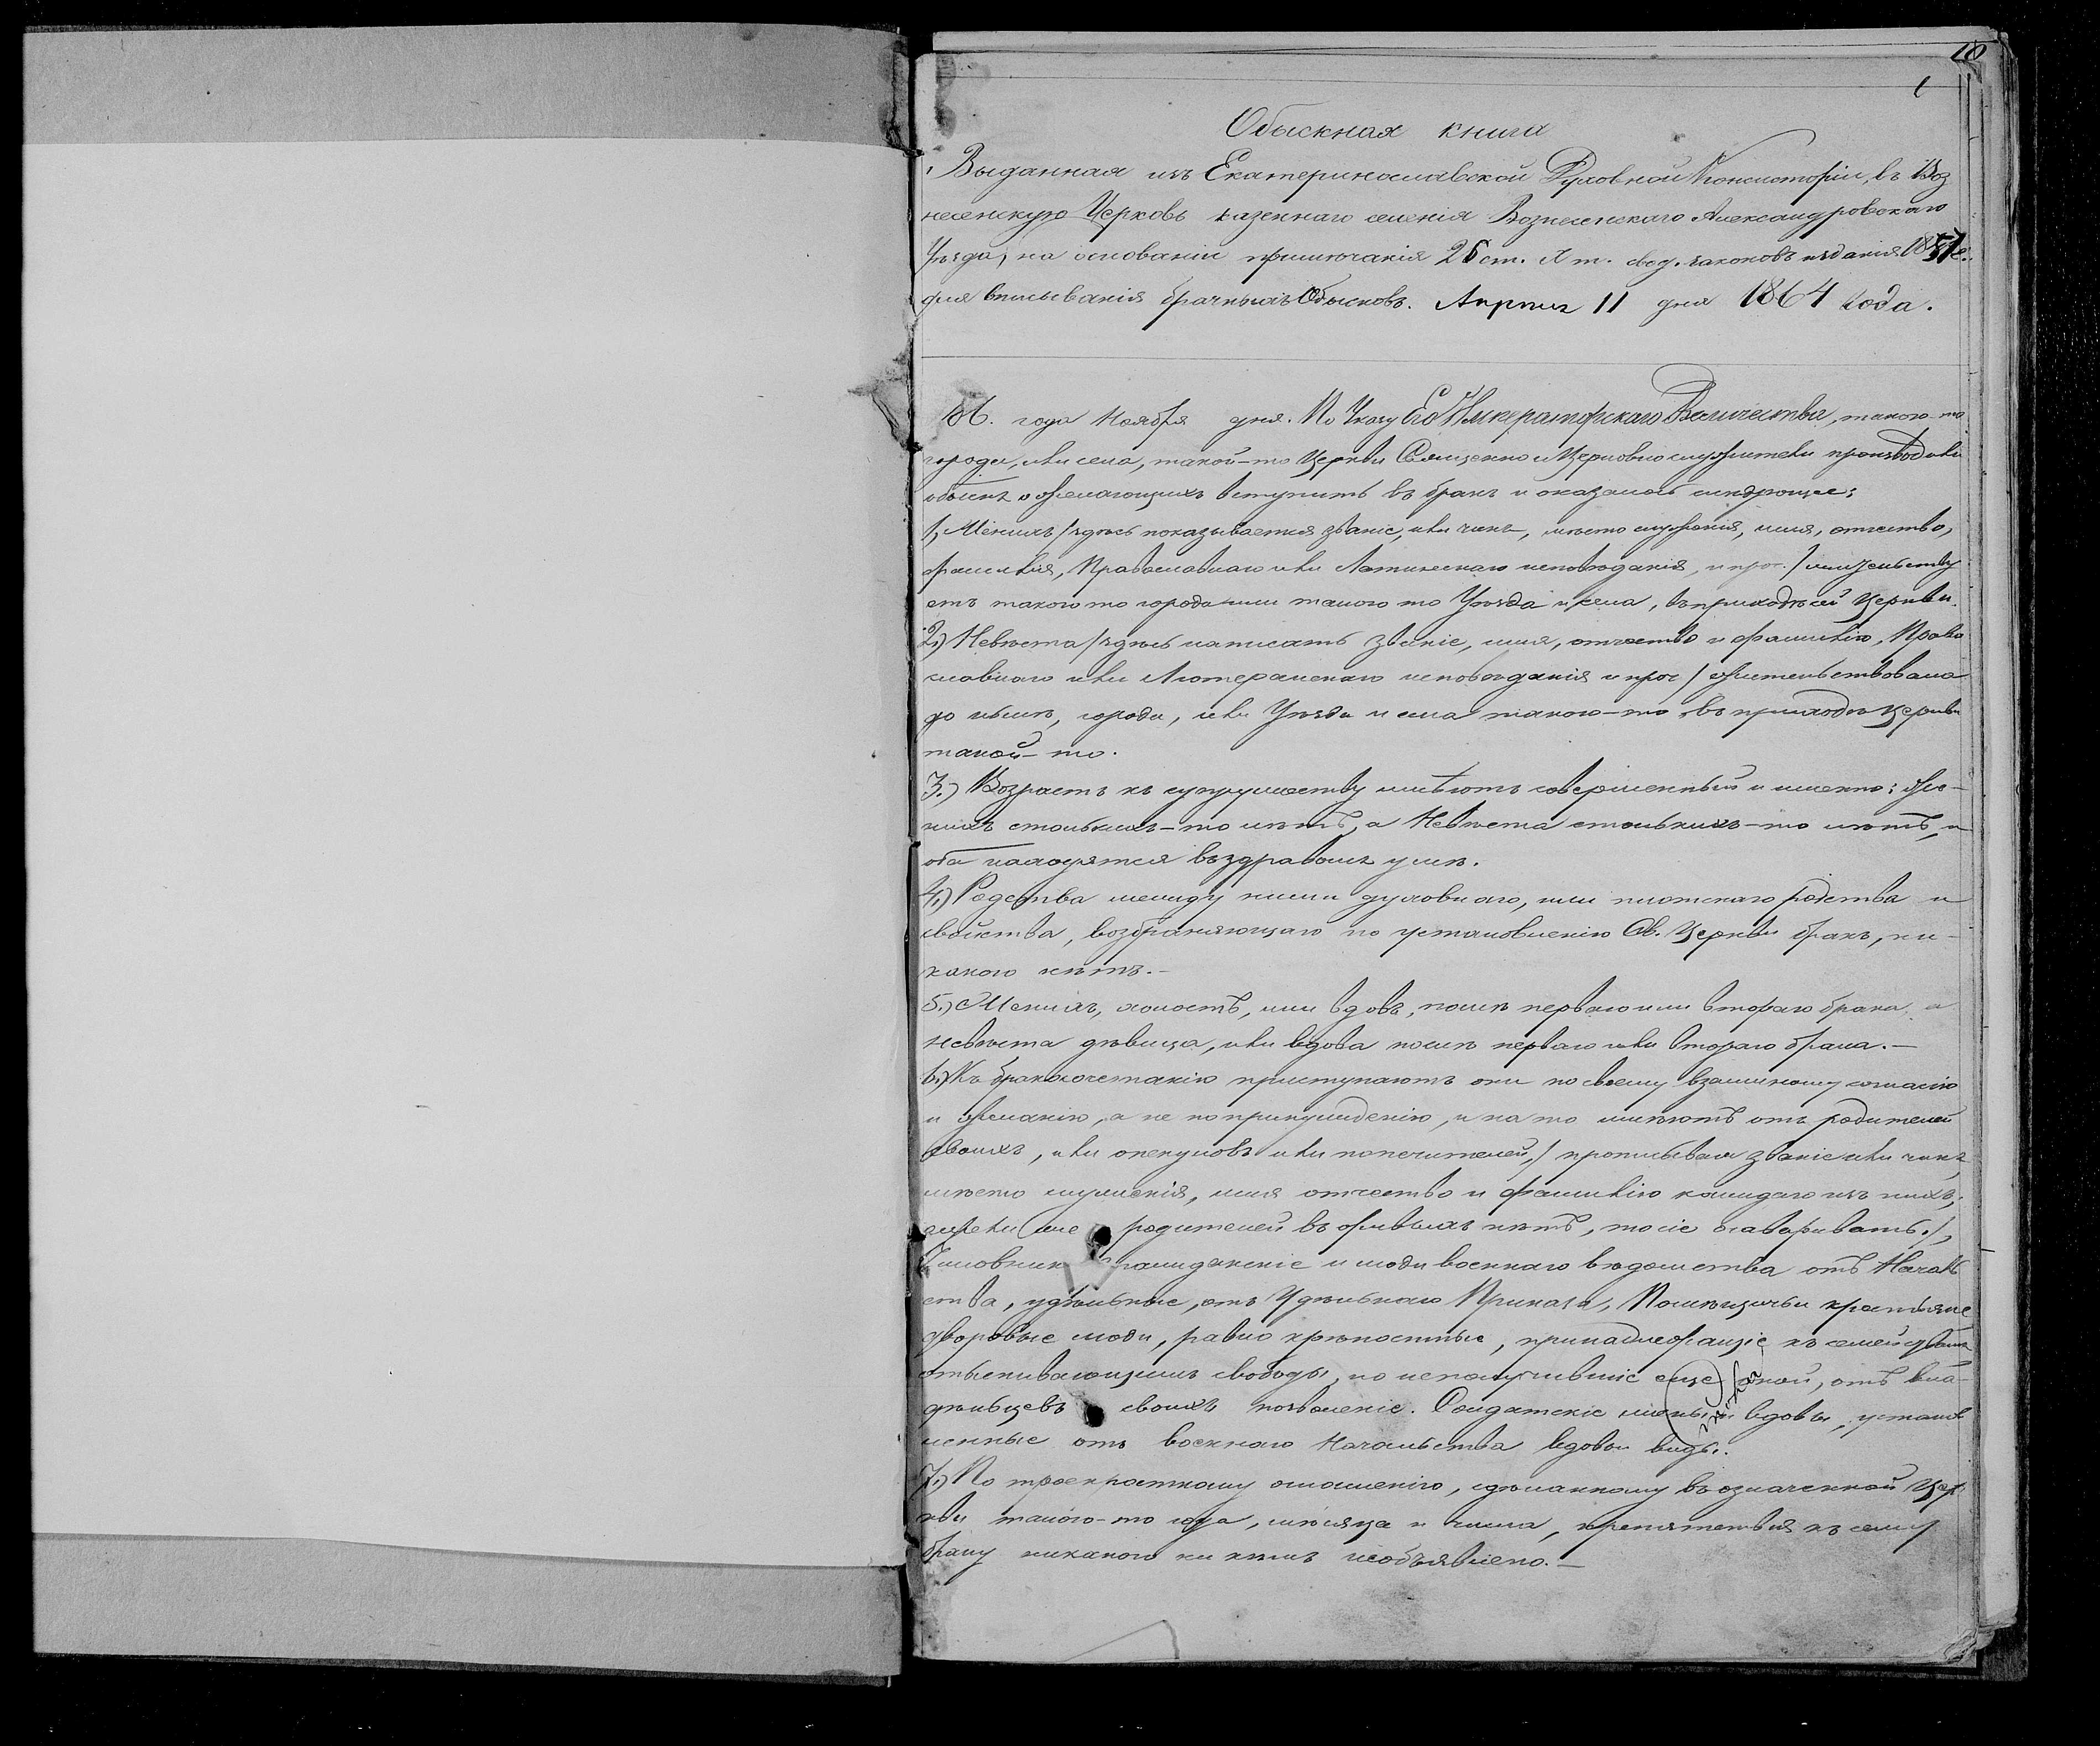 10
1
Обыскная книга
Выданная изъ Екатеринославской Духовной Консисторіи, въ Воз
несенскую Церковь казеннаго селенія Вознесенскаго Александровскаго
Уѣзда, на основаніи примѣчанія 26 ст. X т. свод. законовъ изданія 1857 г.
для вписыванія брачныхъ Обысковъ. Апрѣля 11 дня 1864 года.
186. года Ноября дня. По Указу Его Императорскаго Величества, такого-то
города, или села, такой-то Церкви Священно и Церковно служители производили
обыскъ о желающихъ вступить въ бракъ и оказалось слѣдующее:
1, Женихъ /здѣсь показывается званіе, или чинъ, мѣсто служенія, имя, отчество,
фамилія, Православнаго или Латинскаго исповѣданія, и проч./ жительству
етъ такого то города или такого то Уѣзда и села, въ приходѣ сей Церкви.
2,) Невѣста /здѣсь написать званіе, имя, отчество и фамилію, Право
славнаго или Лютеранскаго исповѣданія и проч/ жительствовала
до нынѣ, города, или Уѣзда и села такого-то въ приходѣ Церкви
такой-то.
3.) Возрастъ къ супружеству имѣютъ совершенный и именно: Же-
нихъ столькихъ-то лѣтъ, а Невѣста столькихъ-то лѣтъ, и
оба находятся въ здравомъ умѣ.
4,) Родства между ними духовнаго, или плотскаго родства и
свойства, возбраняющаго по установленію Св. Церкви бракъ, ни-
какого нѣтъ.-
5.) Женихъ, холостъ, или вдовъ, послѣ перваго или втораго брака, а
невѣста дѣвица, или вдова послѣ перваго или втораго брака.-
6.) Къ бракосочетанію приступаютъ они по своему взаимному согласію
и желанію, а не по принужденію, и на то имѣютъ отъ родителей
своихъ, или опекуновъ или попечителей,/ прописывая званіе или чинъ
мѣсто служенія, имя отчество и фамилію каждаго изъ нихъ;
ежели же родителей въ живыхъ нѣтъ, то сіе оговаривать./,
Чиновник гражданскіе и люди военнаго вѣдомства отъ Началь
ства, удѣльные, отъ Удѣльнаго Приказа, Помѣщичьи крестьяне
дворовые люди, равно крѣпостные, принадлежащіе къ семействамъ
отыскивающимъ свободы, но неполучившіе еще оной, отъ вла-
дѣльцевъ своихъ позволеніе. Солдатскіе жены и вдовы, установ
ленные отъ военнаго Начальства вдовьи виды.
7,) По троекратному оглашенію, сдѣланному въ означенной Цер
кви такого-то года, мѣсяца и числа, препятствія къ сему
браку никакого ни кѣмъ необъявлено.-